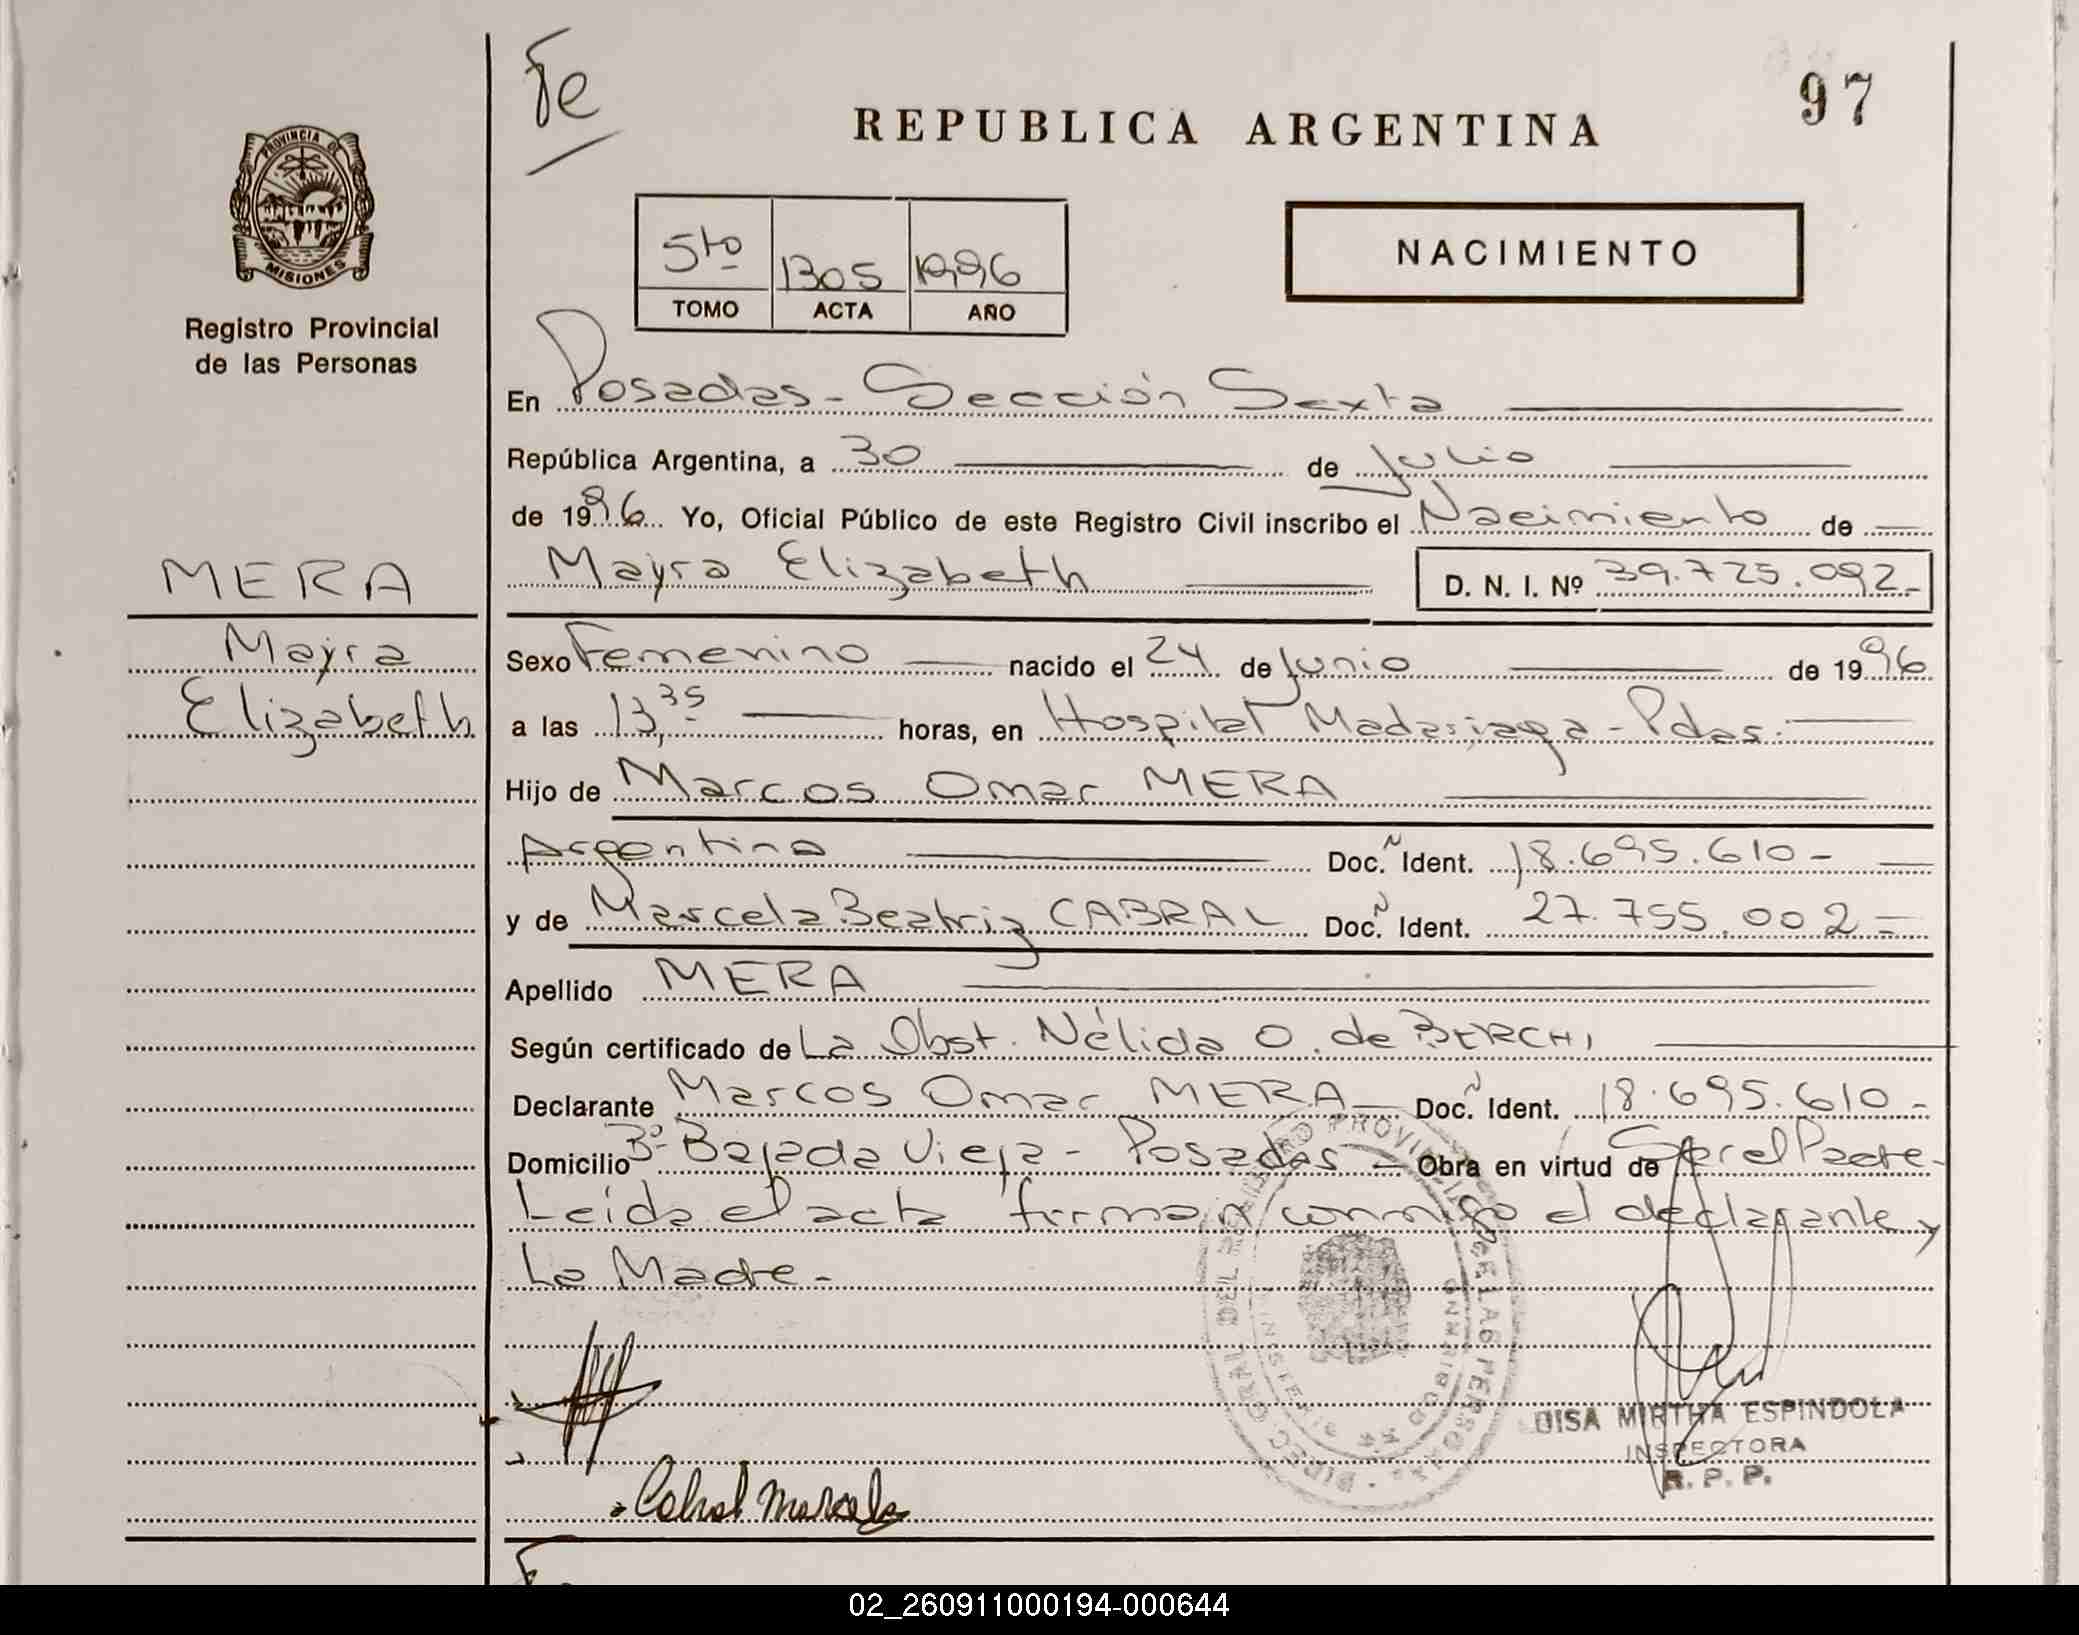 Fe
REPUBLICA ARGENTINA
97
PROVINCIA DE
MISIONES
Registro Provincial
de las Personas
5to 1305 1996
TOMO ACTA AÑO
NACIMIENTO
En Posadas - Sección Sexta
República Argentina, a 30 de Julio
de 1996 Yo, Oficial Público de este Registro Civil inscribo el Nacimiento de
Mayra Elizabeth D. N. I. Nº 39.725.092.-
MERA
Mayra
Elizabeth
Sexo Femenino nacido el 24 de Junio de 1996
a las 13,35 horas, en Hospital Madariaga - Pdas.
Hijo de Marcos Omar MERA
Argentina Doc. Ident. 18.695.610-
y de Marcela Beatriz CABRAL Doc. Ident. 27.755.002-
Apellido MERA
Según certificado de La Obst. Nélida O. de BERCHI
Declarante Marcos Omar MERA Doc. Ident. 18.695.610-
Domicilio Bº Bajada Vieja - Posadas - Obra en virtud de Ser el Padre-
Leída el acta firman conmigo el declarante y
La Madre-
Cabral Marcela
MIRTHA ESPINDOLA
INSPECTORA
R. P. P.
02_260911000194-000644